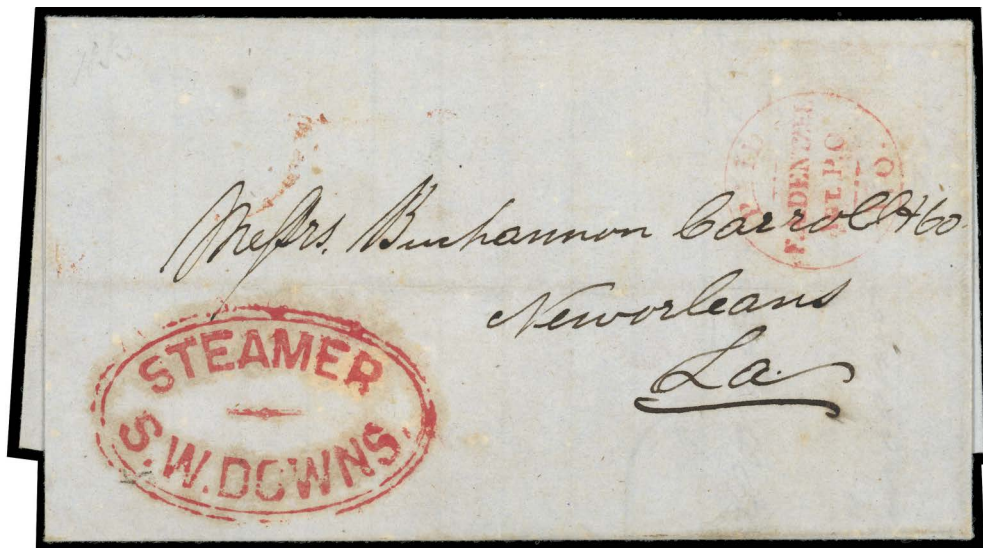 F. DENTZEL
Messrs. Buchannon Carrol & Co.
Neworleans
La.
STEAMER
S.W. DOWNS.